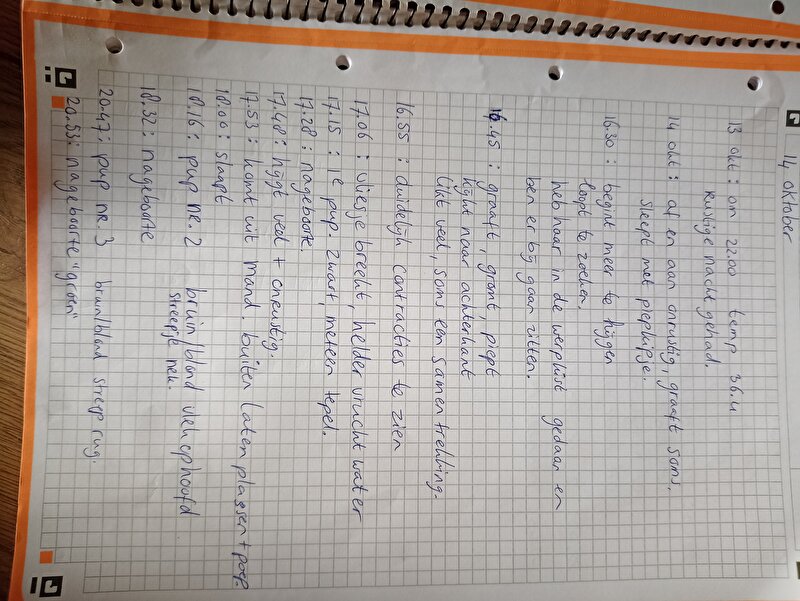 14 oktober
13 okt : om 22.00 temp 36.4
Rustige nacht gehad.
14 okt : af en aan onrustig, graaft soms.
Sleept met piepkipje.
16.30 : begint meer te hijgen
loopt te zoeken.
heb haar in de werpkist gedaan en
ben er bij gaan zitten.
16.45 : graaft, gromt, piept
kijkt naar achterkant
likt veel, soms een samentrekking.
16.55 : duidelijk contracties te zien
17.06 : vliesje breekt, helder vruchtwater
17.15 : 1e pup. zwart, meteen tepel.
17.28 : nageboorte.
17.48 : hijgt veel + onrustig.
17.53 : komt uit mand, buiten laten plassen + poep.
18.00 : slaapt
18.16 : pup nr. 2 bruin/blond vlek op hoofd
streepje nek.
18.32 : nageboorte
20.47 : pup nr. 3 bruin/blond streep rug.
20.53 : nageboorte "groen"